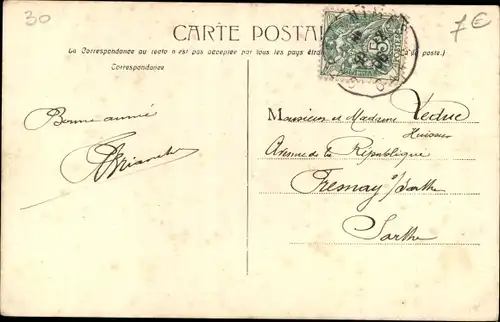 30
7€
CARTE POSTALE
La Correspondance au recto n'est pas acceptée par tous les pays
de poste.)
Correspondance
5
Bonne année
Monsieur et Madame Leduc
Huissier
Avenue de la République
Fresnay s/Sarthe
Sarthe